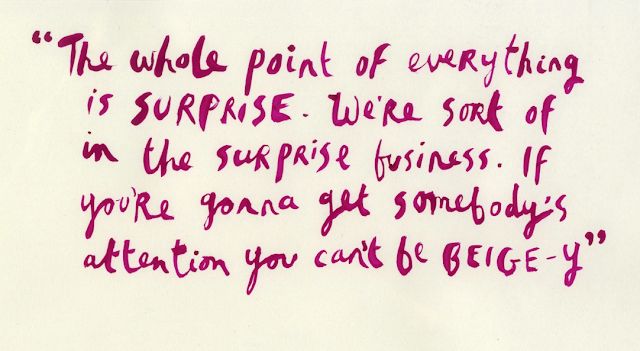 “The whole point of everything
is SURPRISE. We're sort of
in the surprise business. If
you're gonna get somebody's
attention you can't be BEIGE-y”